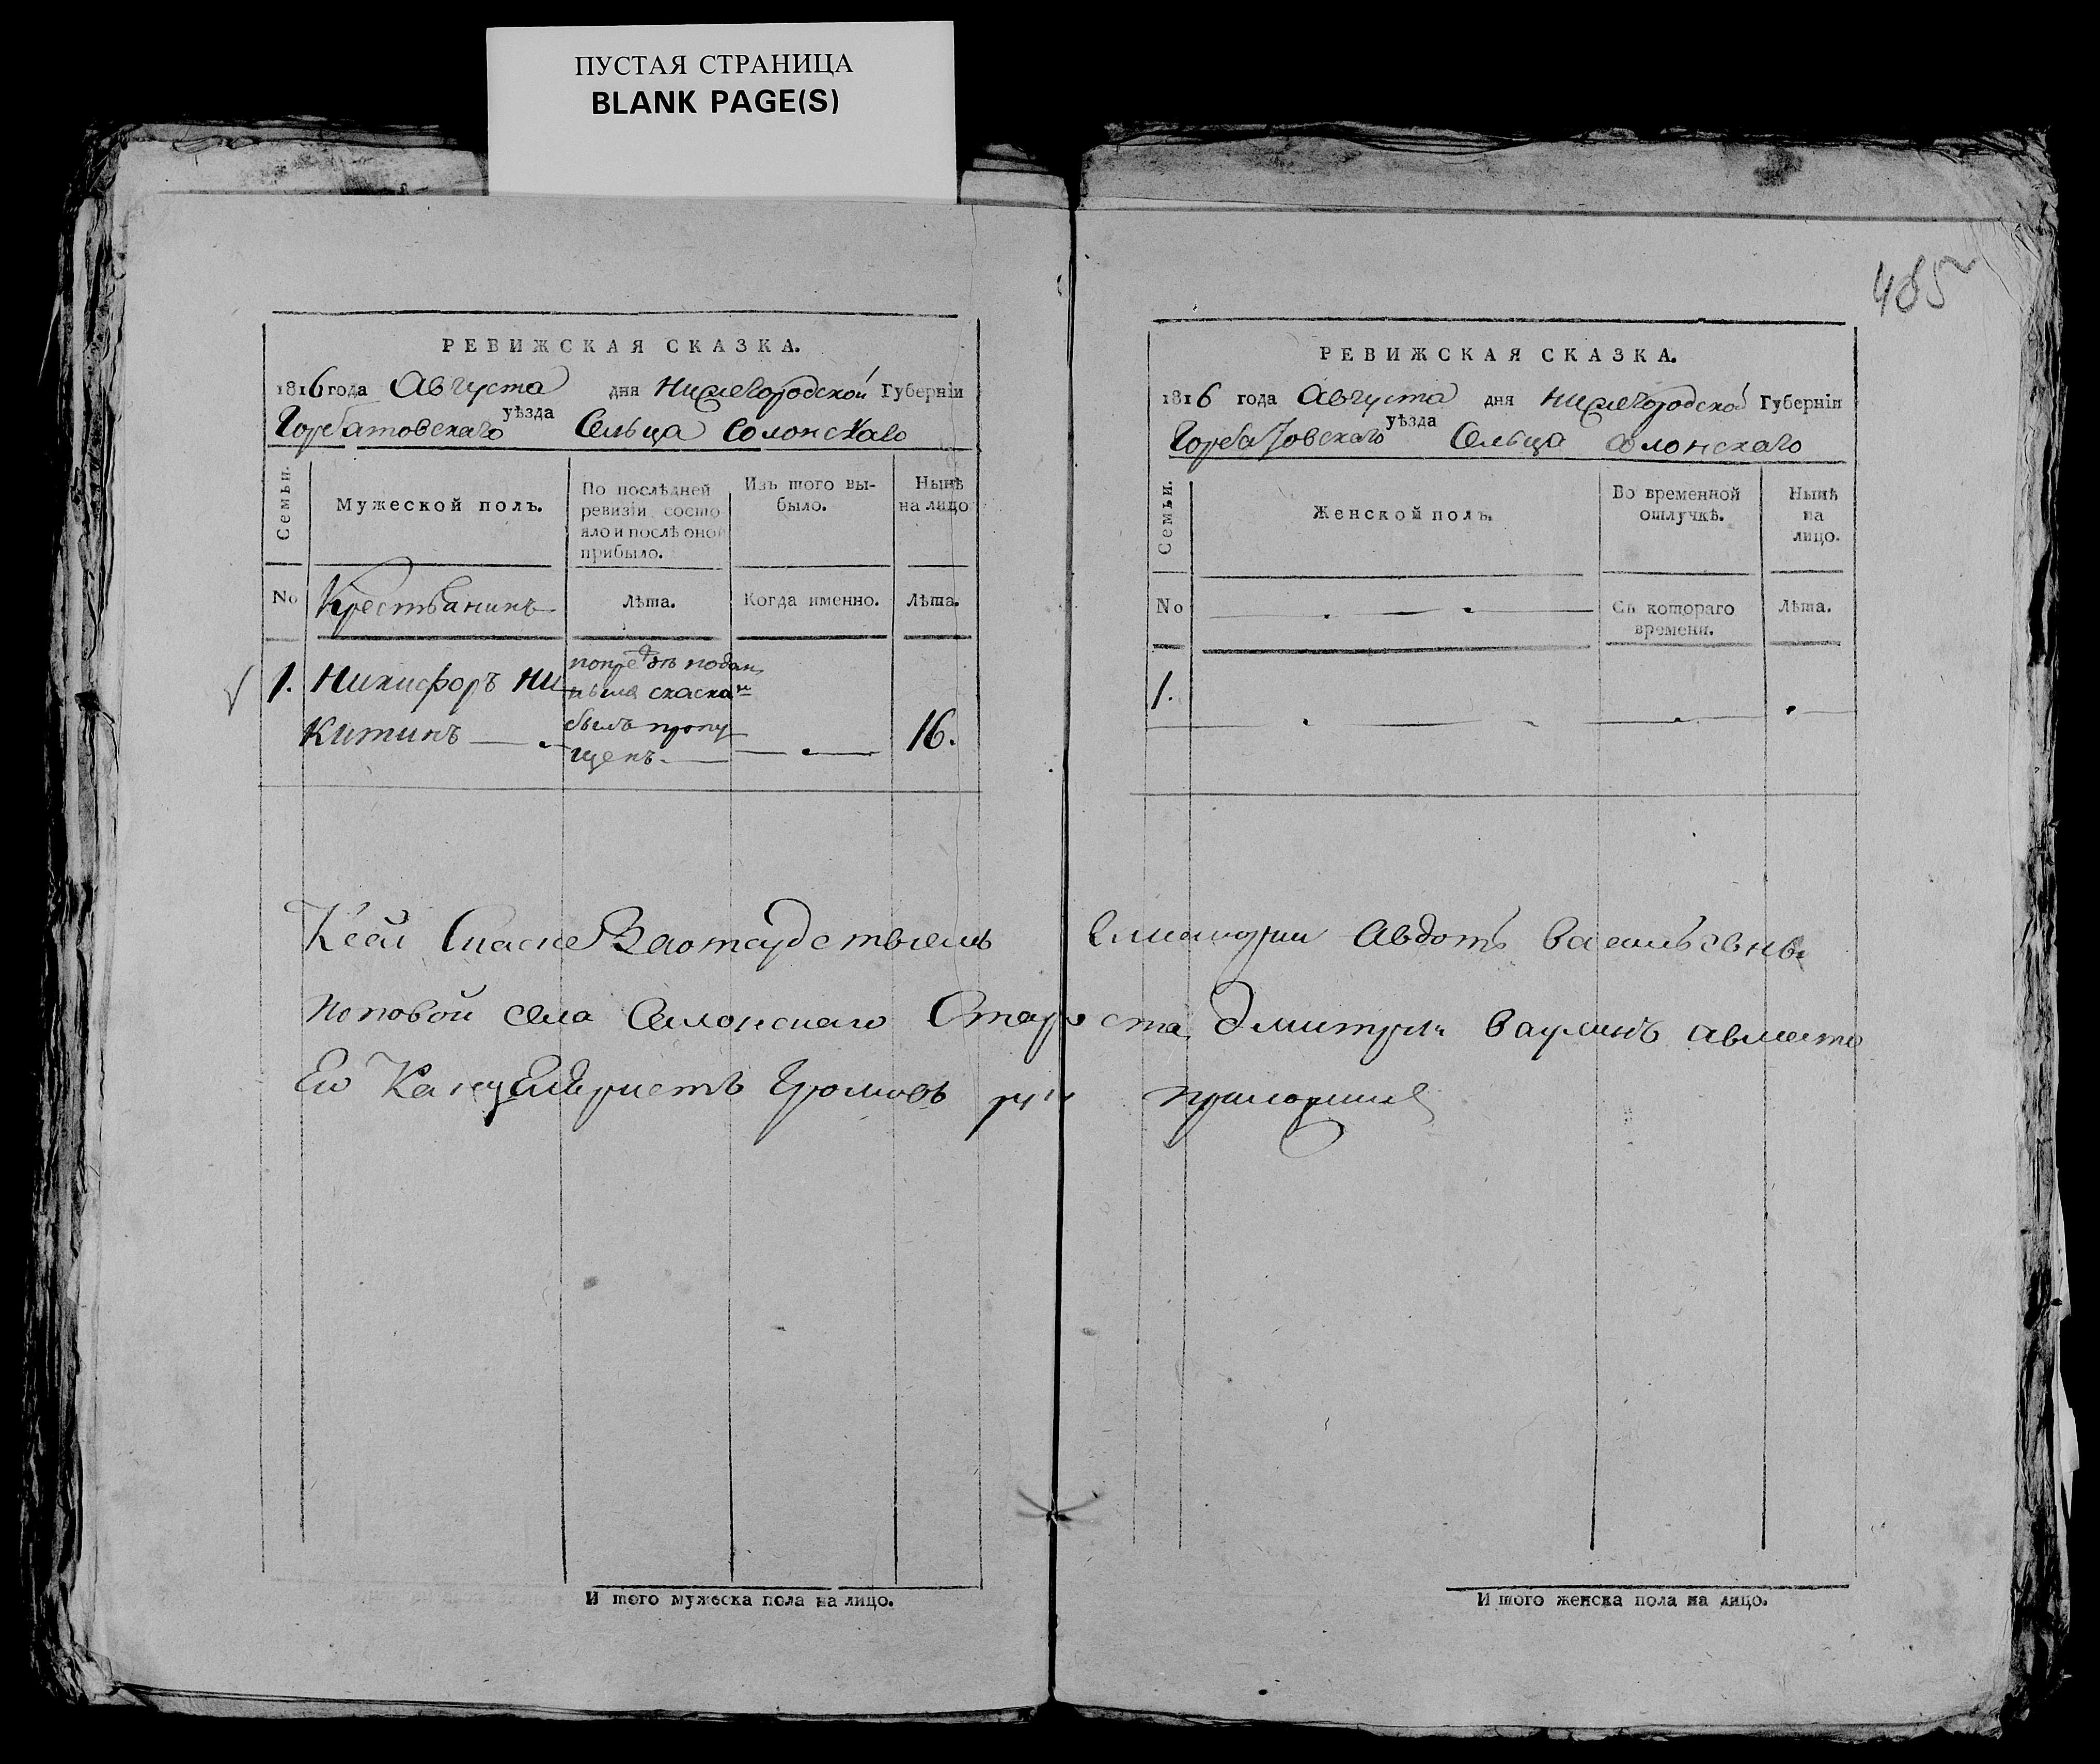 ПУСТАЯ СТРАНИЦА
BLANK PAGE(S)
485
РЕВИЖСКАЯ СКАЗКА.
1816 года Августа дня Нижегородской Губерніи
Горбатовскаго уѣзда Сельца Солонскаго
Семьи.
Мужеской полъ.
По послѣдней ревизіи состояло и послѣ оной прибыло.
Изъ того выбыло.
Нынѣ на лицо
No
Крестьянинъ
Лѣта.
Когда именно.
Лѣта.
1. Никифоръ Ни
китинъ
попредъ подан
нымъ скаска
былъ пропу
щенъ.
16.
РЕВИЖСКАЯ СКАЗКА.
1816 года Августа дня Нижегородской Губерніи
Горбатовскаго уѣзда Сельца Солонскаго
Семьи.
Женской полъ.
Во временной отлучкѣ.
Нынѣ на лицо.
No
Съ котораго времени.
Лѣта.
1.
Ксей Скаске Заотсудствіемъ Авдотьи Васильевны
Поповой села Солонскаго Староста Дмитріи авместо
Ево Канцеляристъ Громовъ руку приложилъ
И того мужеска пола на лицо.
И того женска пола на лицо.